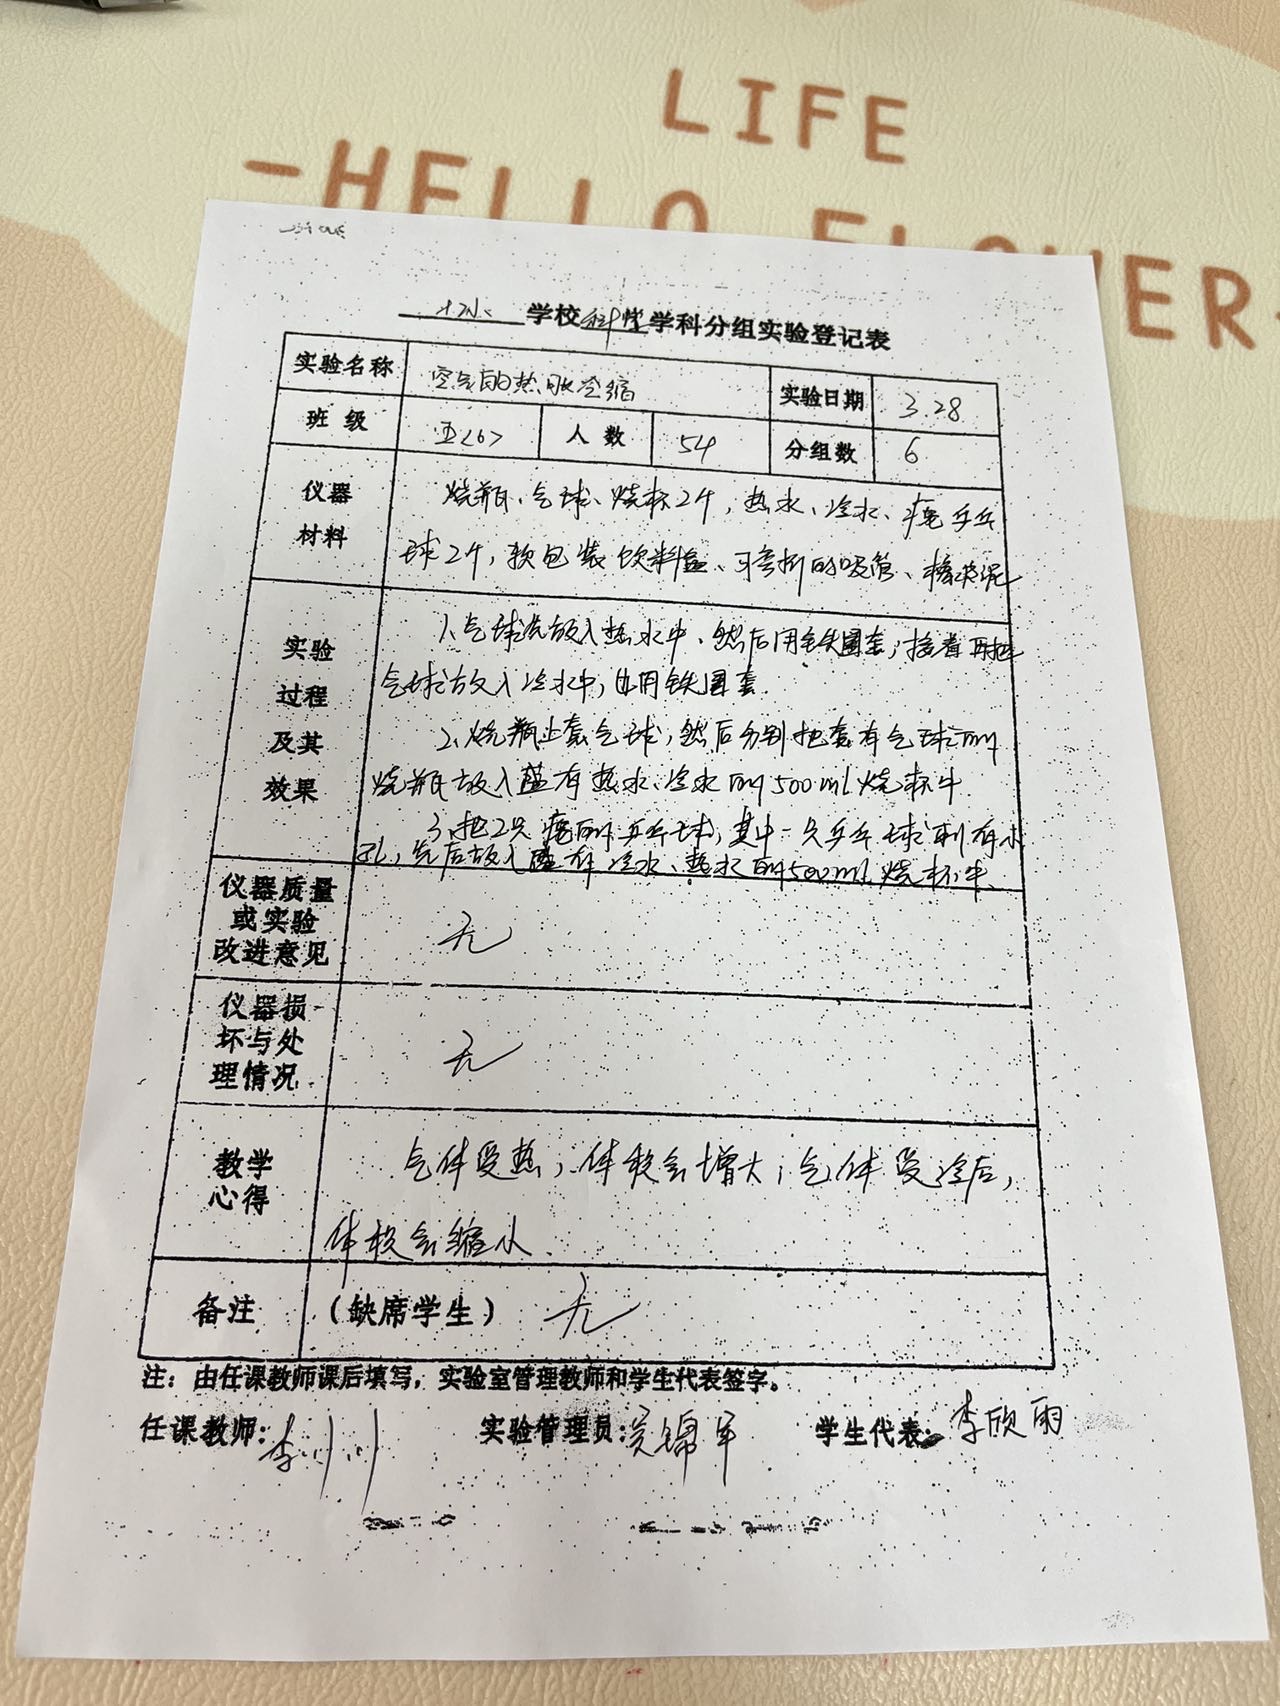 LIFE
-HELLO FLOWER
学校科学学科分组实验登记表
实验名称 空气的热胀冷缩 实验日期 3.28
班级 五<6> 人数 54 分组数 6
仪器 烧瓶、气球、烧杯2个，热水、冷水、瘪乒乓
材料 球2个，软包装饮料盒、可弯折的吸管、橡皮泥
实验 1、气球先放入热水中、然后用铁圈套；接着再把
过程 气球放入冷水中，也用铁圈套.
及其 2、烧瓶上套气球，然后分别把套有气球的
效果 烧瓶放入盛有热水、冷水的500ml烧杯中.
3、把2只瘪的乒乓球，其中一只乒乓球刺有小
孔，先后放入盛有冷水、热水的500ml烧杯中、
仪器质量
或实验 无
改进意见
仪器损
坏与处 无
理情况
教学 气体受热，体积会增大；气体受冷后，
心得 体积会缩小.
备注 （缺席学生） 无
注：由任课教师课后填写，实验室管理教师和学生代表签字。
任课教师：李川川 实验管理员：吴锦军 学生代表：李欣雨